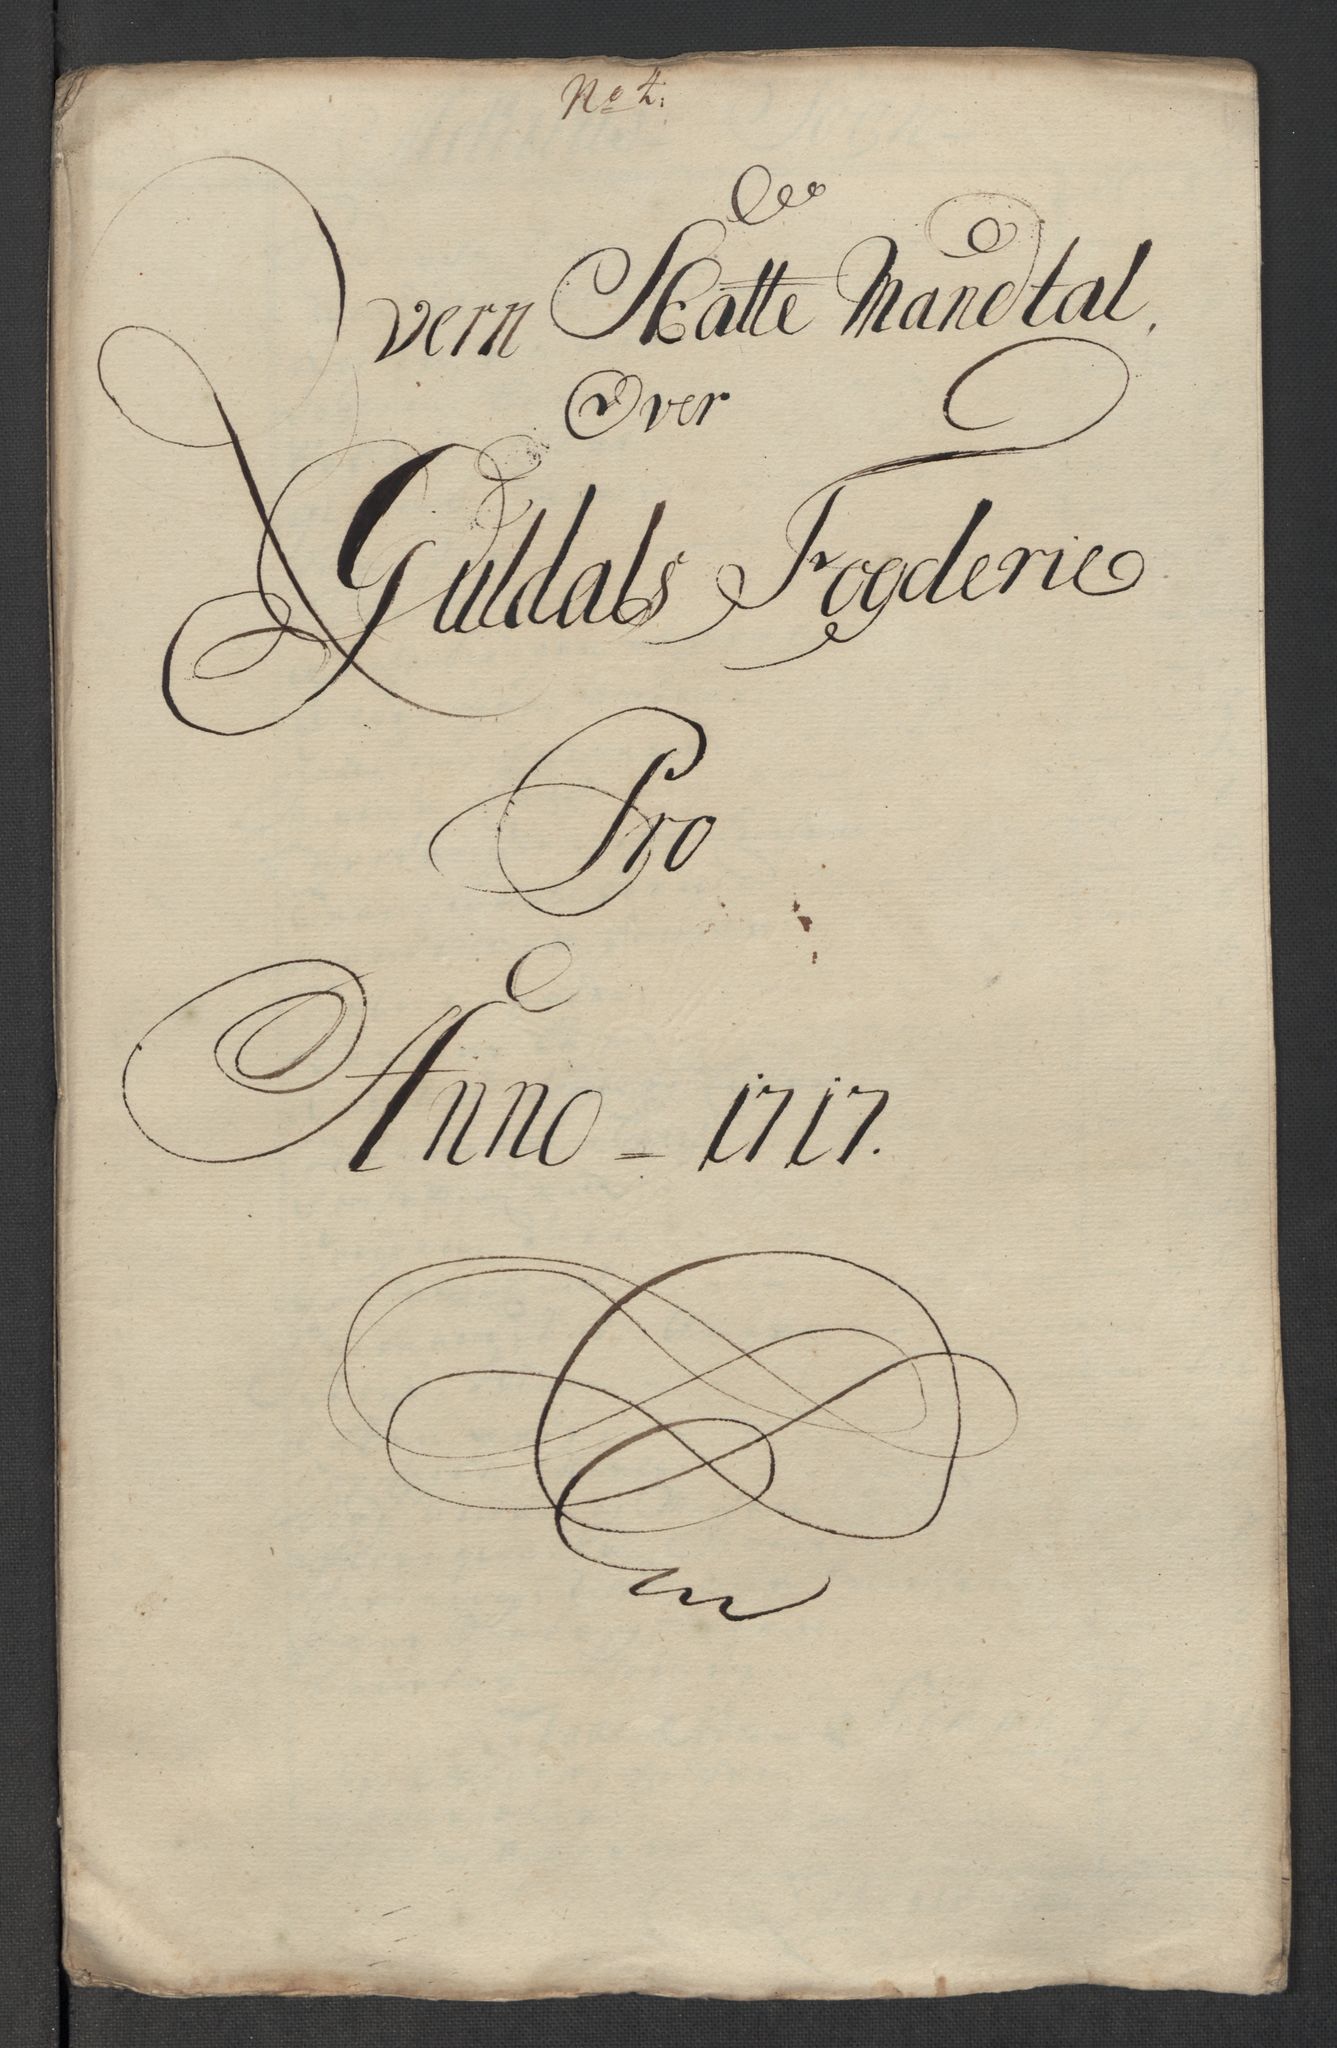 No 4.
Qvern Skatte Mandtal,
Over
Guldals Fogderie
Pro
Anno - 1717.